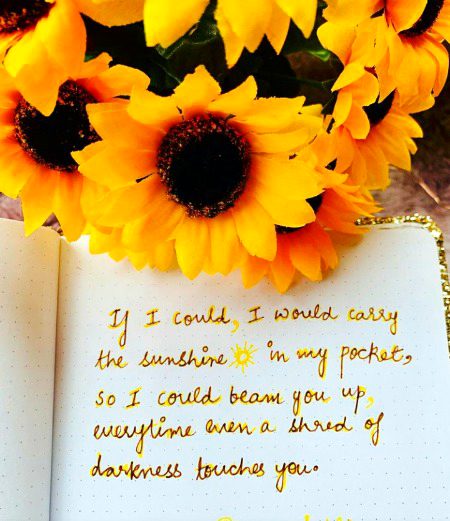 If I could, I would carry
the sunshine in my pocket,
so I could beam you up,
everytime even a shred of
darkness touches you.